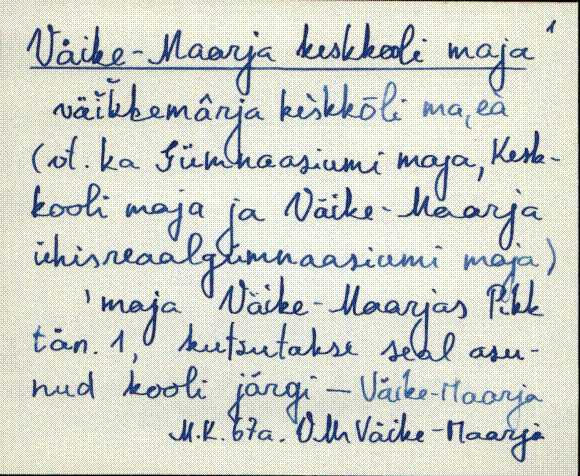 Väike-Maarja keskkooli maja ¹
väĭkkemârja kèskkōli ma,eà
(vt. ka Gümnaasiumi maja, Kesk-
kooli maja ja Väike-Maarja
ühisreaalgümnaasiumi maja)
'maja Väike-Maarjas Pikk
tän. 1, kutsutakse seal asu-
nud kooli järgi – Väike-Maarja
M.K. 67a. VMr Väike-Maarja